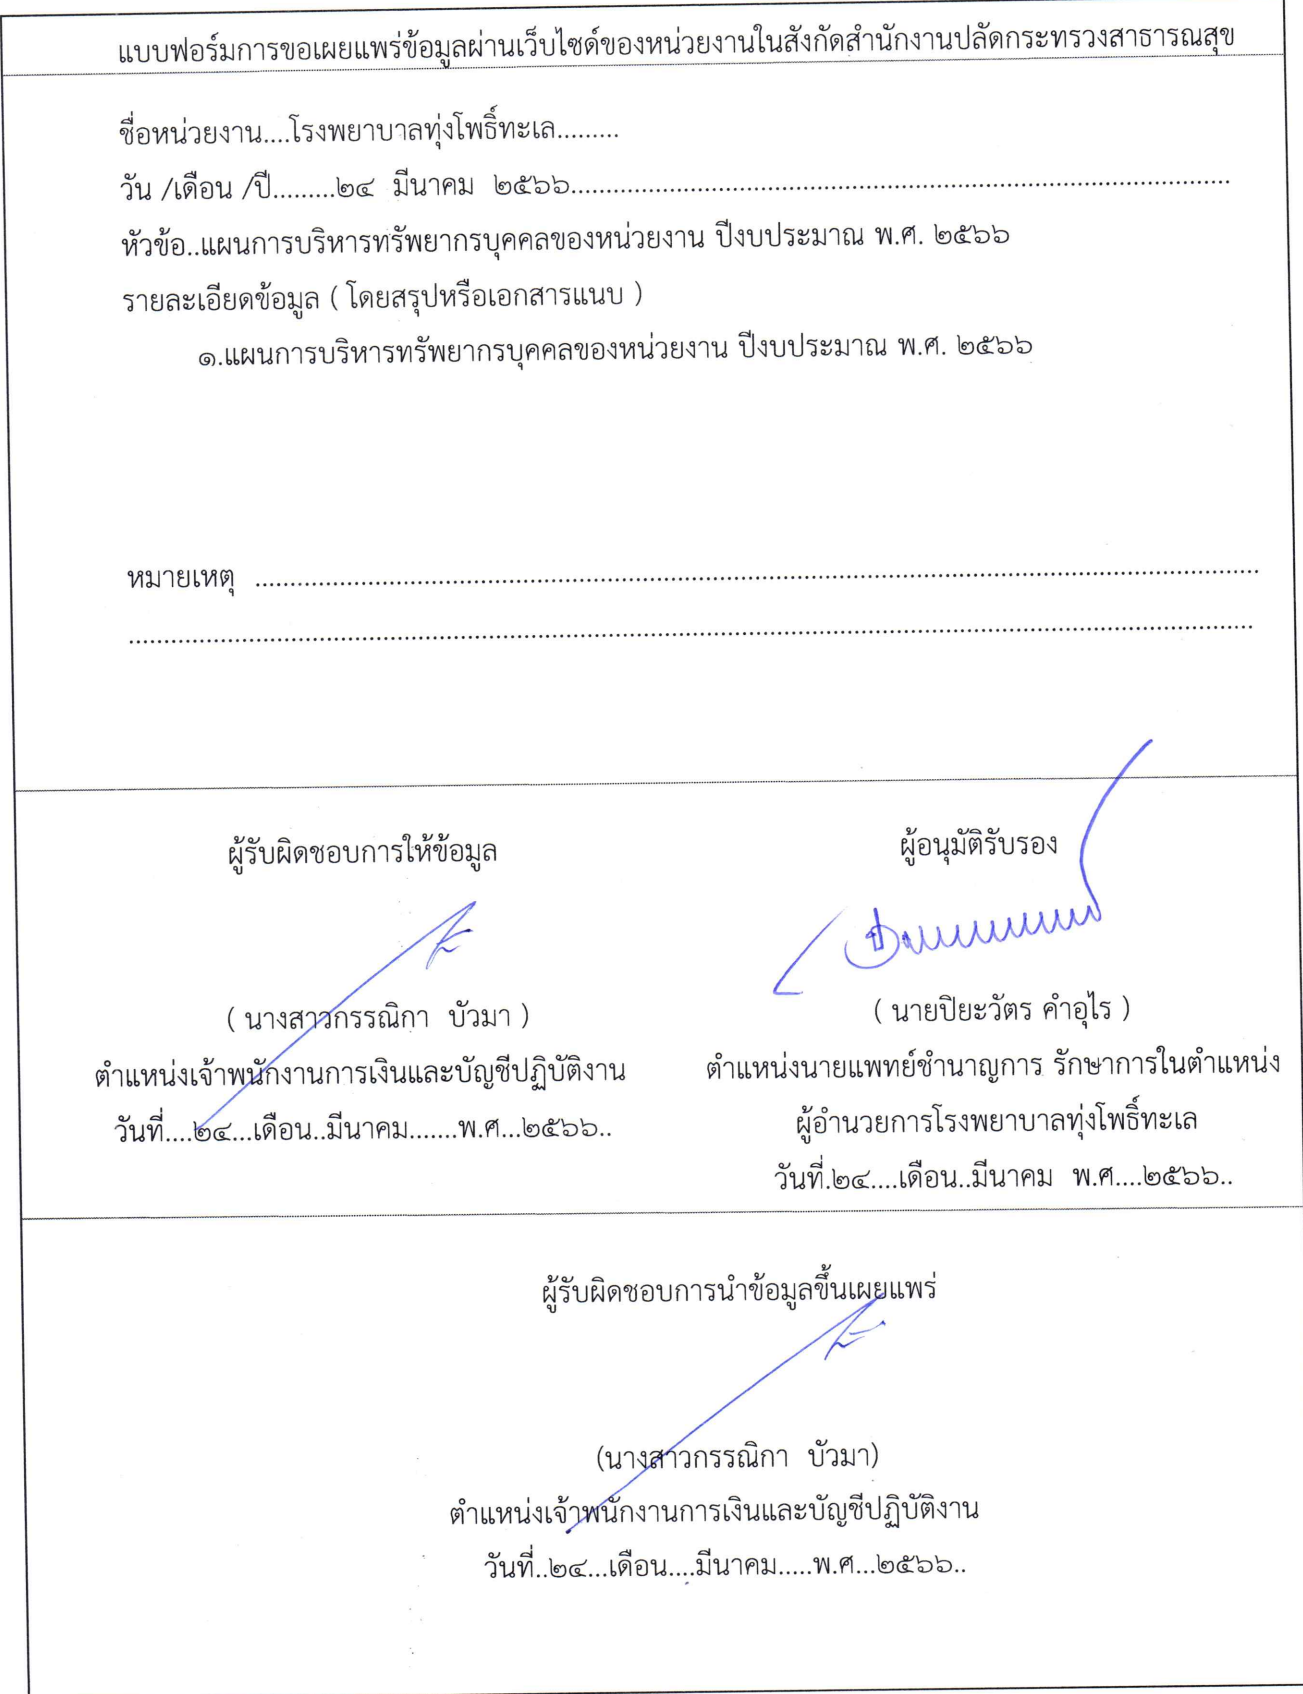 แบบฟอร์มการขอเผยแพร่ข้อมูลผ่านเว็บไซด์ของหน่วยงานในสังกัดสำนักงานปลัดกระทรวงสาธารณสุข
ชื่อหน่วยงาน....โรงพยาบาลทุ่งโพธิ์ทะเล.........
วัน /เดือน /ปี.........๒๔ มีนาคม ๒๕๖๖..............................................................................................
หัวข้อ..แผนการบริหารทรัพยากรบุคคลของหน่วยงาน ปีงบประมาณ พ.ศ. ๒๕๖๖
รายละเอียดข้อมูล ( โดยสรุปหรือเอกสารแนบ )
๑.แผนการบริหารทรัพยากรบุคคลของหน่วยงาน ปีงบประมาณ พ.ศ. ๒๕๖๖
หมายเหตุ ................................................................................................................................................
.................................................................................................................................................................
ผู้รับผิดชอบการให้ข้อมูล
( นางสาวกรรณิกา บัวมา )
ตำแหน่งเจ้าพนักงานการเงินและบัญชีปฏิบัติงาน
วันที่....๒๔...เดือน..มีนาคม.......พ.ศ...๒๕๖๖..
ผู้อนุมัติรับรอง
( นายปิยะวัตร คำอุไร )
ตำแหน่งนายแพทย์ชำนาญการ รักษาการในตำแหน่ง
ผู้อำนวยการโรงพยาบาลทุ่งโพธิ์ทะเล
วันที่.๒๔....เดือน..มีนาคม พ.ศ....๒๕๖๖..
ผู้รับผิดชอบการนำข้อมูลขึ้นเผยแพร่
(นางสาวกรรณิกา บัวมา)
ตำแหน่งเจ้าพนักงานการเงินและบัญชีปฏิบัติงาน
วันที่..๒๔...เดือน....มีนาคม.....พ.ศ...๒๕๖๖..